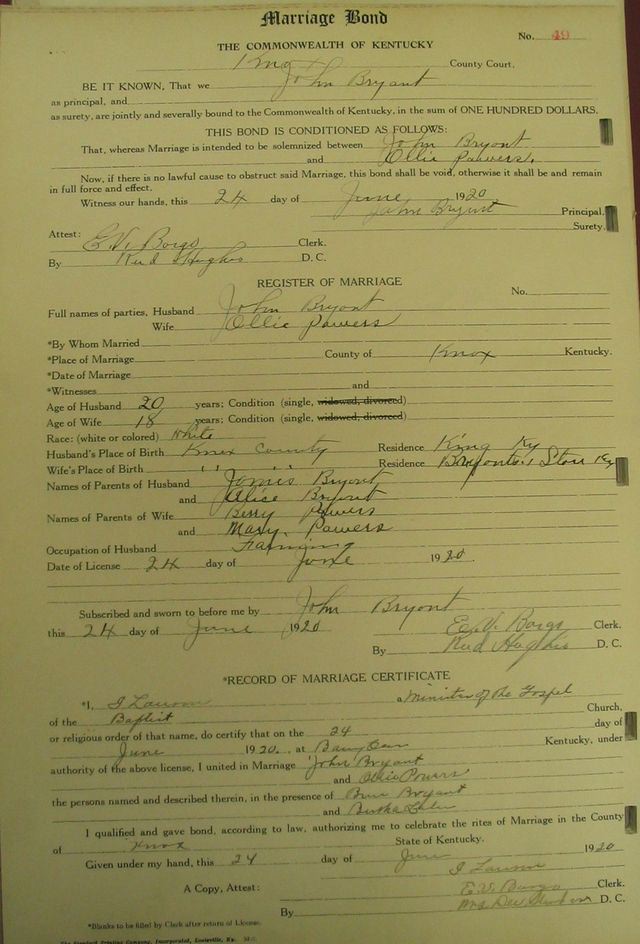 Marriage Bond
No. 49
THE COMMONWEALTH OF KENTUCKY
Knox County Court,
BE IT KNOWN, That we John Bryant
as principal, and
as surety, are jointly and severally bound to the Commonwealth of Kentucky, in the sum of ONE HUNDRED DOLLARS.
THIS BOND IS CONDITIONED AS FOLLOWS:
That, whereas Marriage is intended to be solemnized between John Bryant
and Ollie Powers.
Now, if there is no lawful cause to obstruct said Marriage, this bond shall be void, otherwise it shall be and remain
in full force and effect.
Witness our hands, this 24 day of June 1920
John Bryant Principal,
Surety.
Attest:
Clerk.
By Hughes D. C.
REGISTER OF MARRIAGE
No.
Full names of parties, Husband John Bryant
Wife Ollie Powers
*By Whom Married
*Place of Marriage County of Knox Kentucky.
*Date of Marriage
*Witnesses and
Age of Husband 20 years; Condition (single, widowed, divorced)
Age of Wife 18 years; Condition (single, widowed, divorced)
Race: (white or colored) White
Husband's Place of Birth Knox County Residence King Ky
Wife's Place of Birth " " Residence Bryants Store Ky
Names of Parents of Husband Bryant
and Alice Bryant
Names of Parents of Wife Berry Powers
and Mary Powers
Occupation of Husband Farming
Date of License 24 day of June 1920
Subscribed and sworn to before me by John Bryant
this 24 day of June 1920 Clerk.
By Hughes D. C.
*RECORD OF MARRIAGE CERTIFICATE
*I, a Minister of the Gospel
of the Baptist Church,
or religious order of that name, do certify that on the 24 day of
June 1920, at Kentucky, under
authority of the above license, I united in Marriage John Bryant
and Ollie Powers
the persons named and described therein, in the presence of Bryant
and
I qualified and gave bond, according to law, authorizing me to celebrate the rites of Marriage in the County
of Knox State of Kentucky.
Given under my hand, this 24 day of June 1920
A Copy, Attest: Clerk.
By D. C.
*Blanks to be filled by Clerk after return of License.
The Standard Printing Company, Incorporated, Louisville, Ky.